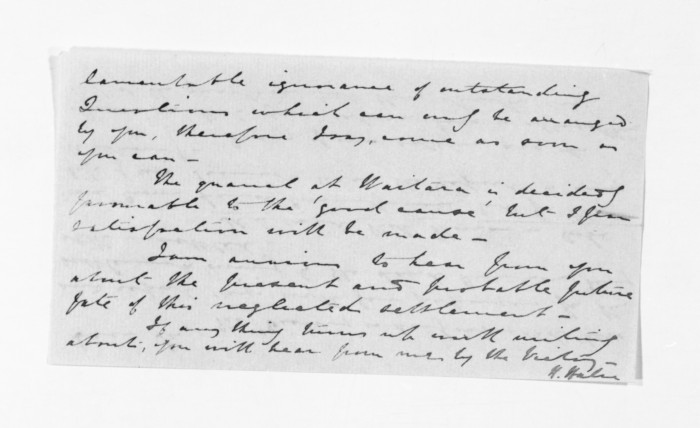 lamentable ignorance of outstanding
Questions which can only be arranged
by you, therefore I say, come as soon as
you can -
The quarrel at Waitara is decidedly
favourable to the 'good cause', but I fear
satisfaction will be made -
I am anxious to hear from you
about the present and probable future
fate of this neglected settlement -
If any thing turns up worth writing
about, you will hear from me by the
H. Halse